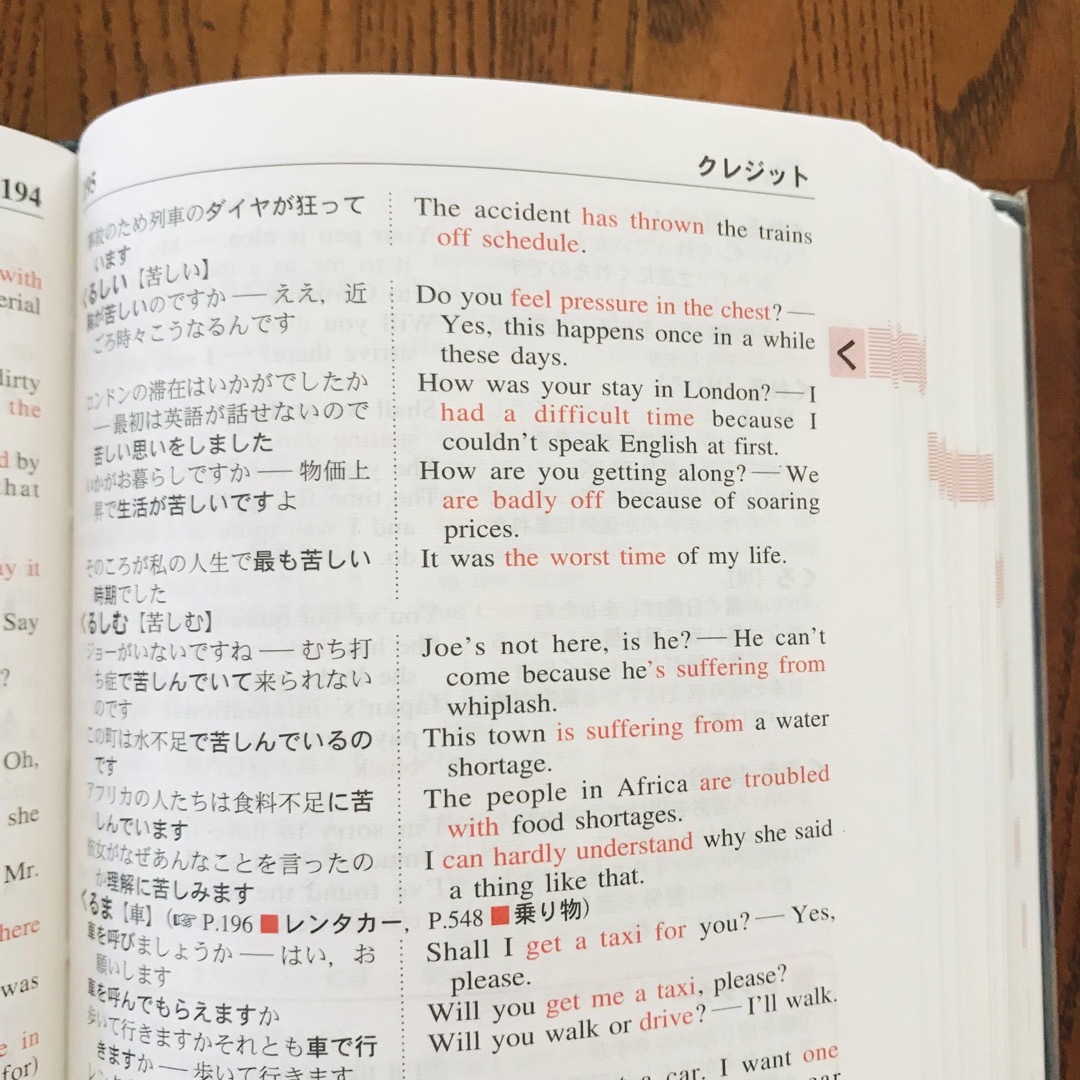 194
with
erial
dirty
the
d by
that
ay it
Say
?
Oh,
she
Mr.
here
was
e in
for)
クレジット
のため列車のダイヤが狂って
います
くるしい【苦しい】
が苦しいのですか ── ええ，近
ごろ時々こうなるんです
ロンドンの滞在はいかがでしたか
─最初は英語が話せないので
苦しい思いをしました
いかがお暮らしですか ── 物価上
昇で生活が苦しいですよ
そのころが私の人生で最も苦しい
時期でした
くるしむ【苦しむ】
ジョーがいないですね ── むち打
ち症で苦しんでいて来られない
のです
この町は水不足で苦しんでいるの
です
アフリカの人たちは食料不足に苦
しんでいます
彼女がなぜあんなことを言ったの
か理解に苦しみます
くるま【車】(☞ P.196 ■レンタカー， P.548 ■乗り物)
車を呼びましょうか ── はい，お
願いします
車を呼んでもらえますか
歩いて行きますかそれとも車で行
きますか ── 歩いて行きます
The accident has thrown the trains
off schedule.
Do you feel pressure in the chest? ──
Yes, this happens once in a while
these days.
How was your stay in London? ── I
had a difficult time because I
couldn't speak English at first.
How are you getting along? ── We
are badly off because of soaring
prices.
It was the worst time of my life.
Joe's not here, is he? ── He can't
come because he's suffering from
whiplash.
This town is suffering from a water
shortage.
The people in Africa are troubled
with food shortages.
I can hardly understand why she said
a thing like that.
Shall I get a taxi for you? ── Yes,
please.
Will you get me a taxi, please?
Will you walk or drive? ── I'll walk.
a car. I want one
く